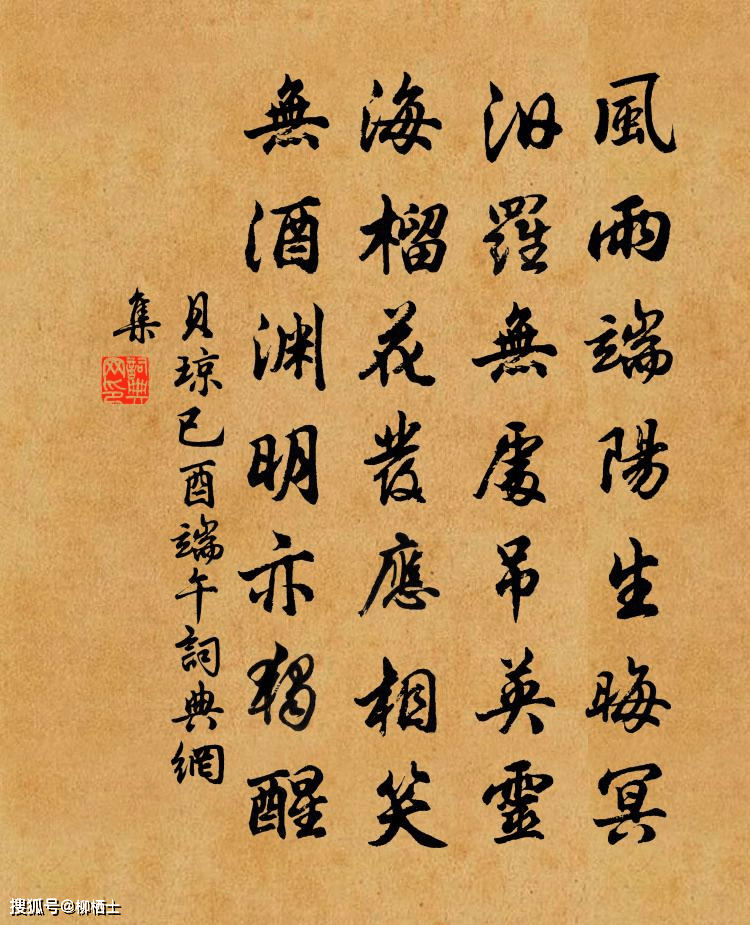 風雨端陽生晦冥
汨羅無處吊英靈
海榴花發應相笑
無酒渊明亦獨醒
貝琼己酉端午詞典網
集
詞典网印
搜狐号@柳栖士